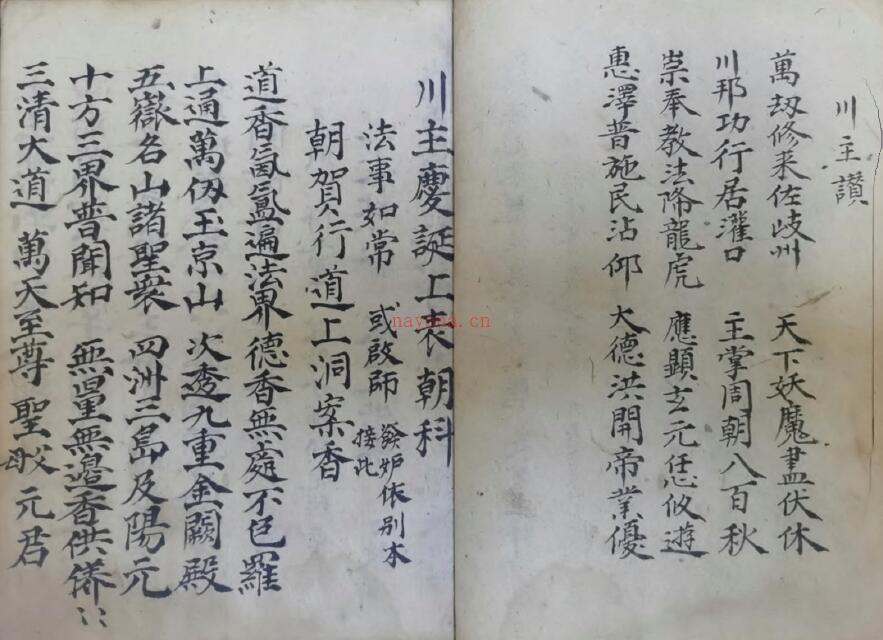 川主讚
萬刼修来佐岐州 天下妖魔盡伏休
川邦功行居灌口 主掌周朝八百秋
崇奉教法降龍虎 應顯玄元恁攸遊
惠澤普施民沾仰 大德洪開帝業優
川主慶誕上表朝科
法事如常 或啟師 發炉依别本接此
朝賀行道上洞案香
道香氤氳遍法界 德香無處不包羅
上通萬仞玉京山 次透九重金闕殿
五嶽名山諸聖衆 四洲三島及陽元
十方三界普聞知 無量無邉香供俻
三清大道 萬天至尊 聖 元君
nayona.cn